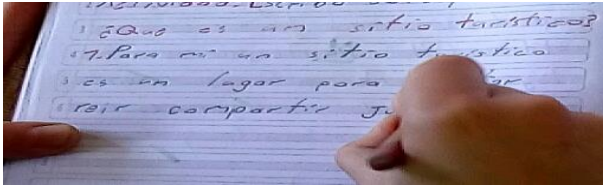 ¿Que es un sitio turistico?
1. Para mi un sitio turistico
es un lugar para
reir compartir